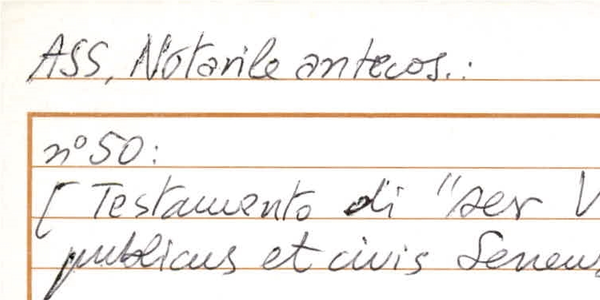 ASS, Notarile antecos.:
n° 50:
[ Testamento di "ser V
publicus et civis Senens